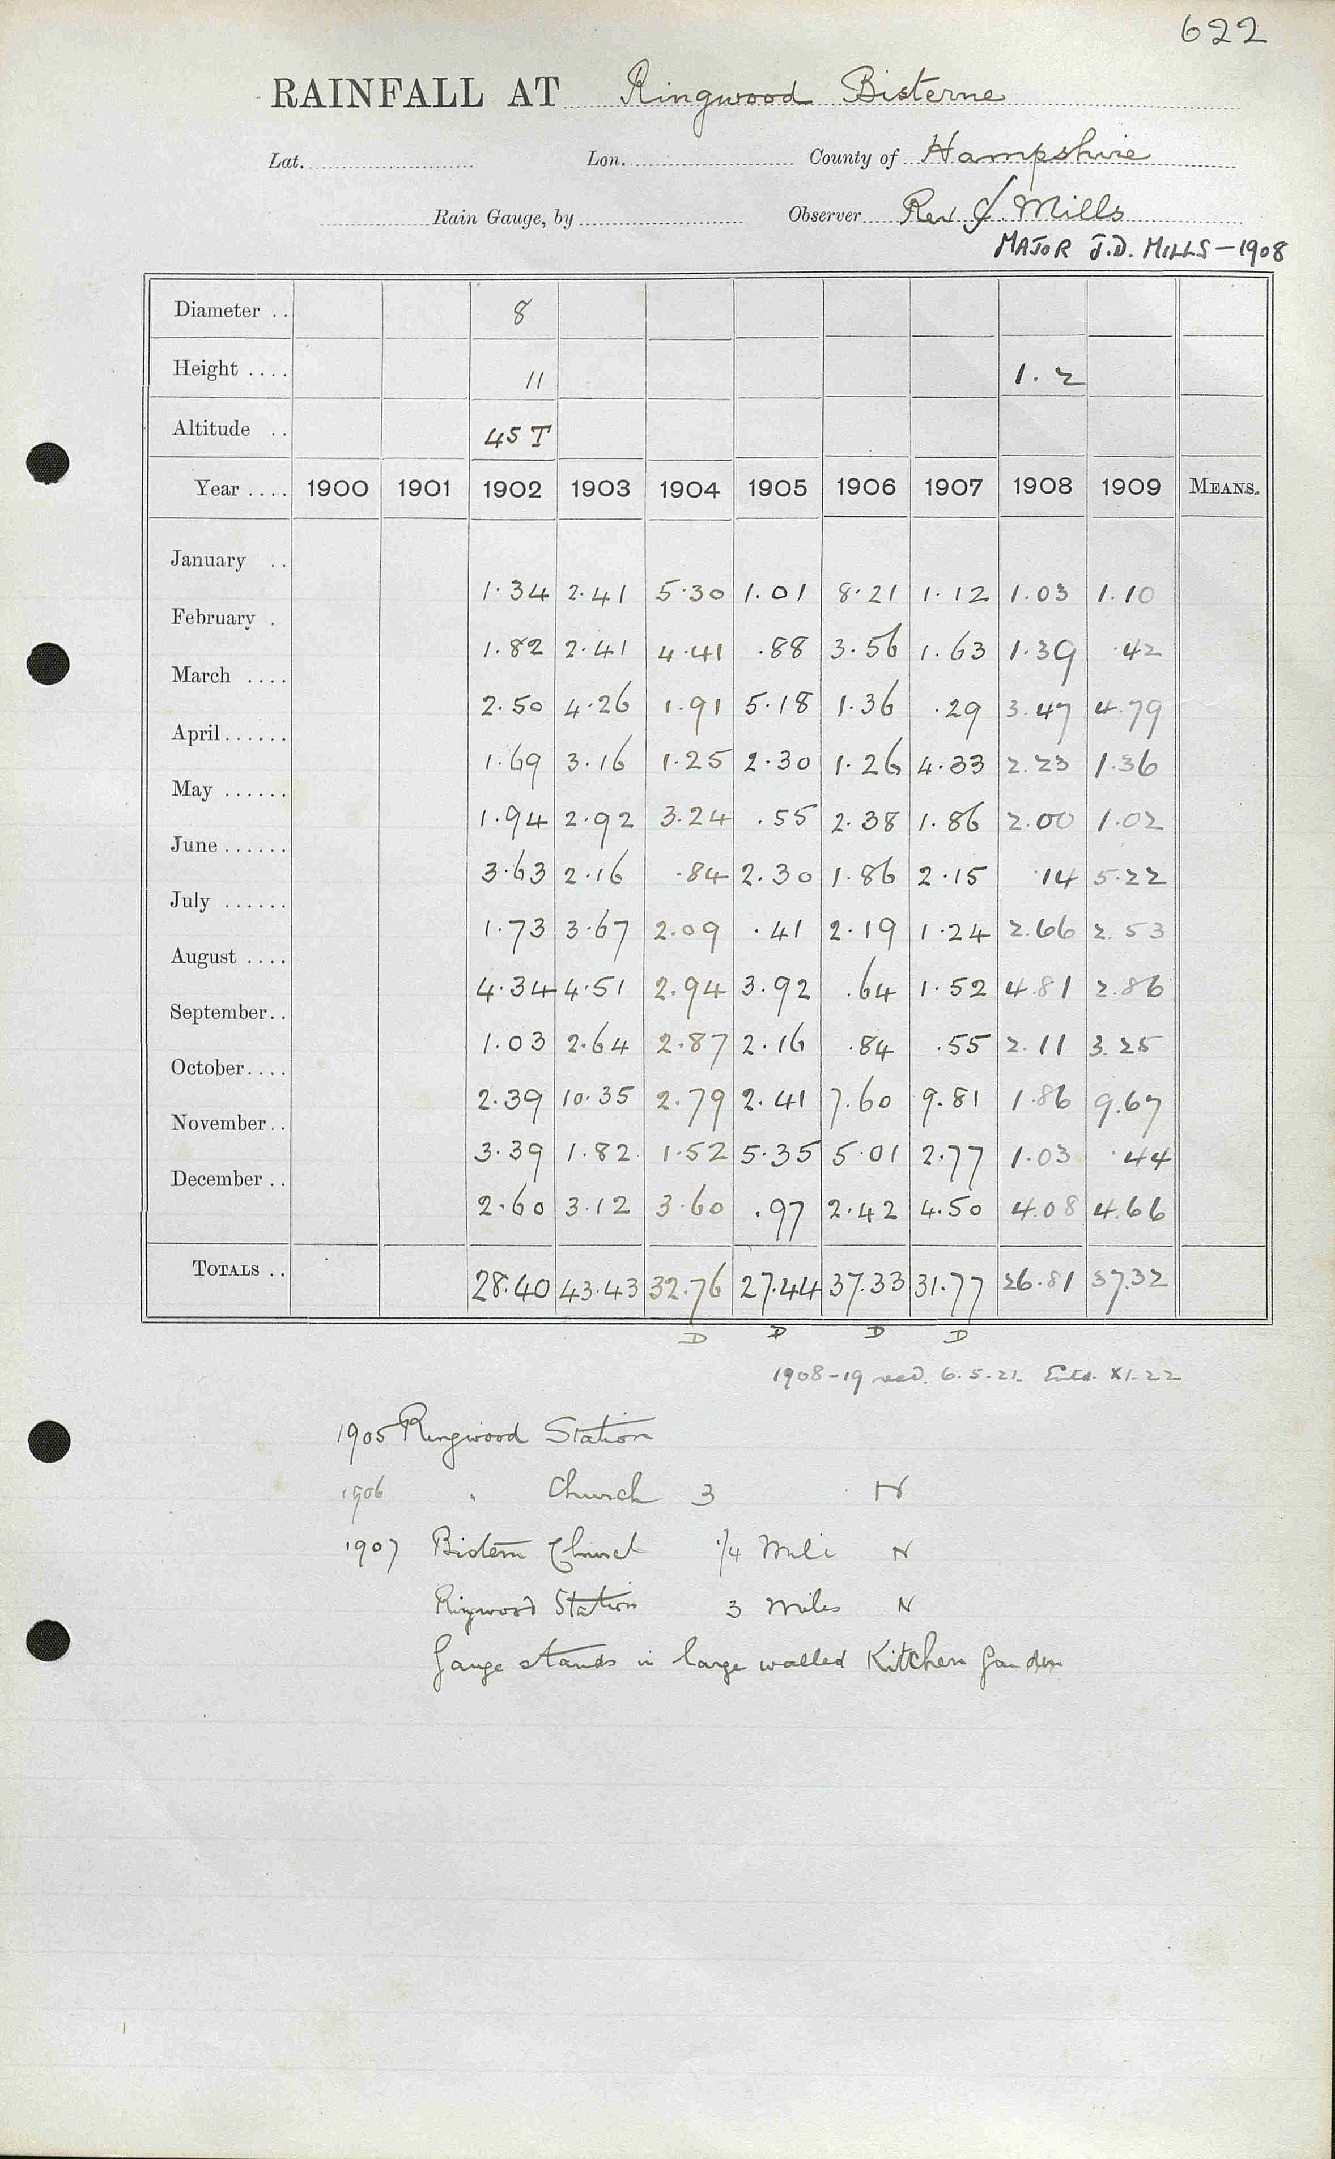 622
RAINFALL AT Ringwood Bisterne
Lat. Lon. County of Hampshire
Rain Gauge, by Observer Rev J. Mills
MAJOR J.D. MILLS - 1908
Diameter .. 8
Height .... 11 1.2
Altitude .. 45 T
Year .... 1900 1901 1902 1903 1904 1905 1906 1907 1908 1909 MEANS.
January .. 1.34 2.41 5.30 1.01 8.21 1.12 1.03 1.10
February . 1.82 2.41 4.41 .88 3.56 1.63 1.39 .42
March .... 2.50 4.26 1.91 5.18 1.36 .29 3.47 4.79
April ...... 1.69 3.16 1.25 2.30 1.26 4.33 2.23 1.36
May ...... 1.94 2.92 3.24 .55 2.38 1.86 2.00 1.02
June ...... 3.63 2.16 .84 2.30 1.86 2.15 .14 5.22
July ...... 1.73 3.67 2.09 .41 2.19 1.24 2.66 2.53
August .... 4.34 4.51 2.94 3.92 .64 1.52 4.81 2.86
September.. 1.03 2.64 2.87 2.16 .84 .55 2.11 3.25
October.... 2.39 10.35 2.79 2.41 7.60 9.81 1.86 9.67
November.. 3.39 1.82 1.52 5.35 5.01 2.77 1.03 .44
December .. 2.60 3.12 3.60 .97 2.42 4.50 4.08 4.66
TOTALS .. 28.40 43.43 32.76 27.44 37.33 31.77 26.81 37.32
D D D D
1908-19 recd. 6.5.21. Entd. XI.22
1905 Ringwood Station
1906 " Church 3 N
1907 Bistern Church 1/4 Mile N
Ringwood Station 3 Miles N
Gauge stands in large walled Kitchen Garden